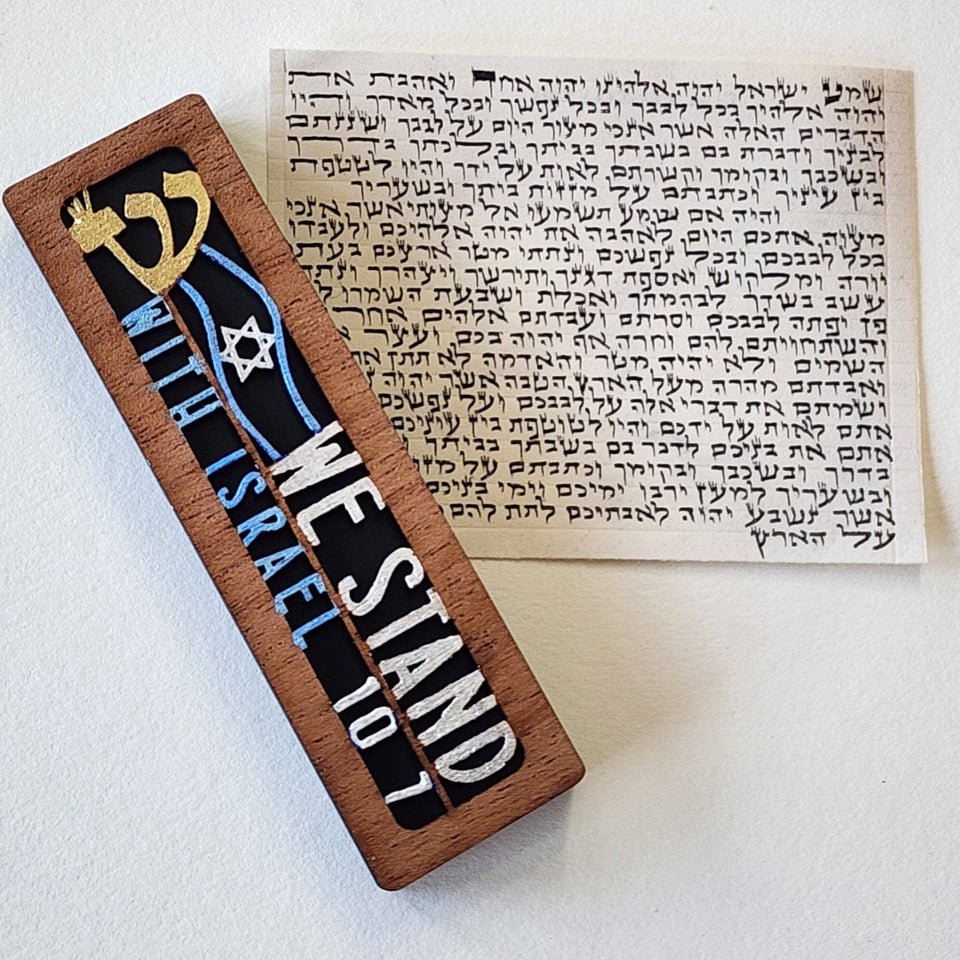 ש
WE STAND
WITH ISRAEL 10 7
שמע ישראל יהוה אלהינו יהוה אחד ואהבת את
יהוה אלהיך בכל לבבך ובכל נפשך ובכל מאדך והיו
הדברים האלה אשר אנכי מצוך היום על לבבך ושננתם
לבניך ודברת בם בשבתך בביתך ובלכתך בדרך
ובשכבך ובקומך וקשרתם לאות על ידך והיו לטטפת
בין עיניך וכתבתם על מזוזות ביתך ובשעריך
והיה אם שמע תשמעו אל מצותי אשר אנכי
מצוה אתכם היום לאהבה את יהוה אלהיכם ולעבדו
בכל לבבכם ובכל נפשכם ונתתי מטר ארצכם בעת
יורה ומלקוש ואספת דגנך ותירשך ויצהרך ונתת
עשב בשדך לבהמתך ואכלת ושבעת השמרו
פן יפתה לבבכם וסרתם ועבדתם אלהים
והשתחויתם להם וחרה אף יהוה בכם ועצר
השמים ולא יהיה מטר והאדמה לא תתן
ואבדתם מהרה מעל הארץ הטבה אשר יהוה
ושמתם את דברי אלה על לבבכם ועל נפשכם
אתם לאות על ידכם והיו לטוטפת בין עיניכם
אתם את בניכם לדבר בם בשבתך בביתך
בדרך ובשכבך ובקומך וכתבתם על
ובשעריך למען ירבו ימיכם וימי בניכם
אשר נשבע יהוה לאבתיכם לתת להם
על הארץ